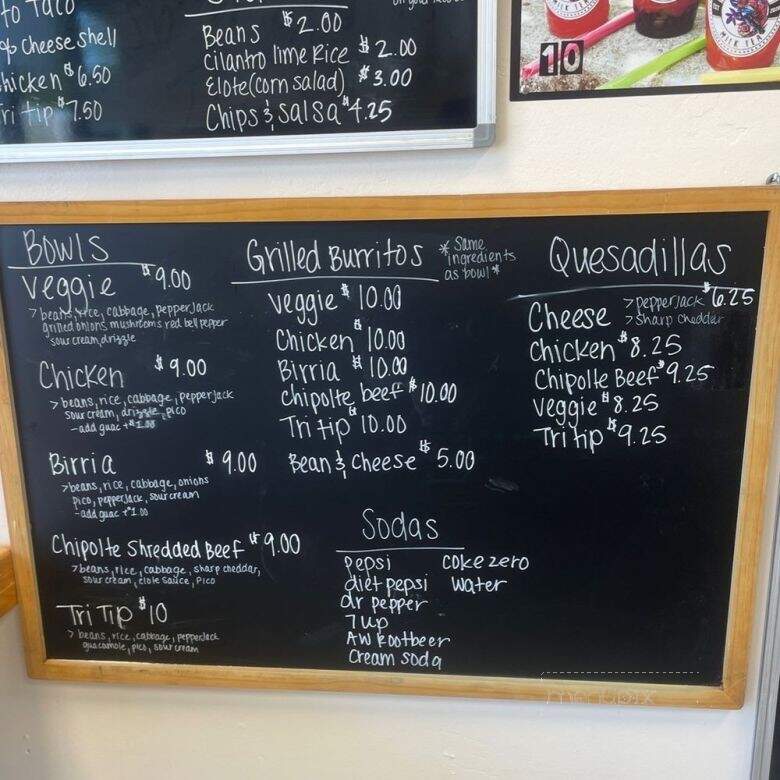 to Taco
% Cheese shell
hicken $6.50
ri tip $7.50
Beans $2.00
Cilantro lime Rice $2.00
Elote (corn salad) $3.00
Chips & Salsa $4.25
10
MILK TEA
MILK TEA
Bowls
Veggie $9.00
> beans, rice, cabbage, pepper jack
grilled onions mushrooms red bell pepper
sour cream, drizzle
Chicken $9.00
> beans, rice, cabbage, pepperjack
sour cream, drizzle, pico
- add guac +$1.00
Birria $9.00
> beans, rice, cabbage, onions
pico, pepperjack, sour cream
- add guac +$1.00
Chipolte Shredded Beef $9.00
> beans, rice, cabbage, sharp cheddar,
sour cream, elote sauce, pico
Tri Tip $10
> beans, rice, cabbage, pepperjack
guacamole, pico, sour cream
Grilled Burritos
* Same
ingredients
as bowl *
Veggie $10.00
Chicken $10.00
Birria $10.00
Chipolte beef $10.00
Tri tip $10.00
Bean & Cheese $5.00
Sodas
pepsi
diet pepsi
dr pepper
7 up
AW Rootbeer
Cream soda
coke zero
water
Quesadillas
Cheese > pepperjack $6.25
> sharp cheddar
Chicken $8.25
Chipolte Beef $9.25
Veggie $8.25
Tri tip $9.25
menupix